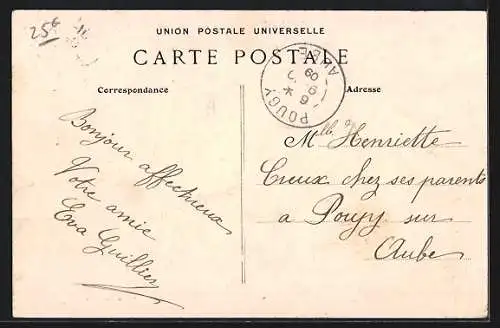 25 6
UNION POSTALE UNIVERSELLE
CARTE POSTALE
Correspondance
Adresse
POUGY AUBE
Bonjour affectueux
Votre amie
Eva Guillier
Mlle Henriette
Creux chez ses parents
a Pougy sur
Aube